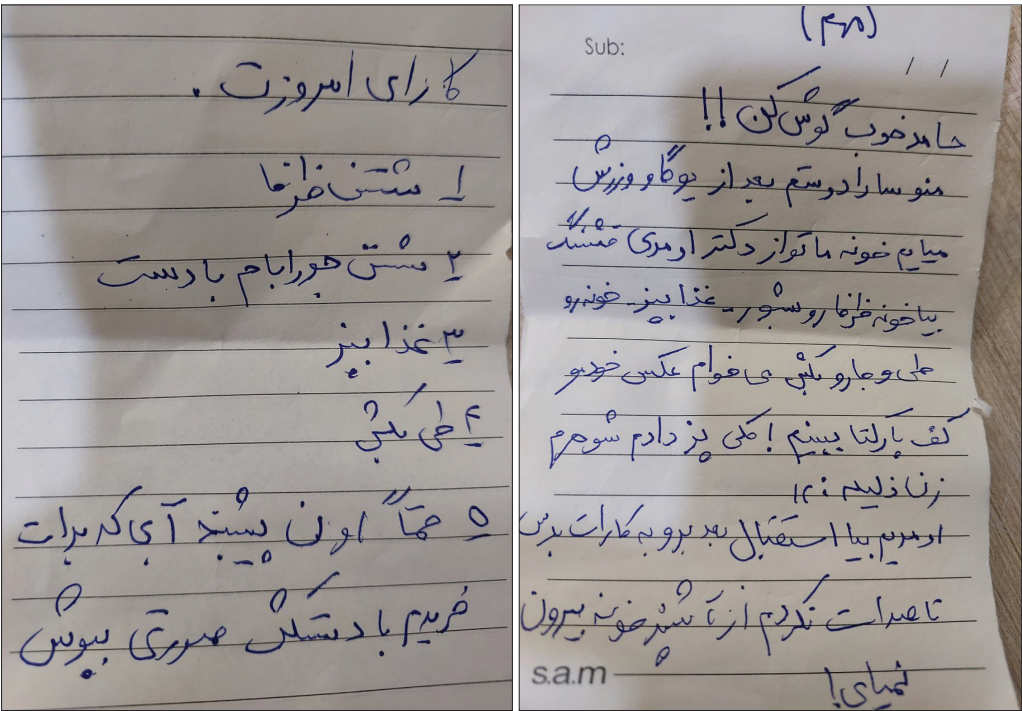 کارای امروزت .
۱ شستن ظرفا
۲ شستن جورابام با دست
۳ غذا بپز
۴ طی بکشی
۵ حتماً اون پیشبند آبی که برات
خریدم با دستکش صورتی بپوش
(مهم)
Sub:
/ /
حامد خوب گوش کن !!
منو سارا دوستم بعد از یوگا و ورزش
میایم خونه ما تو از دکتر اومدی قشنگ
بیا خونه ظرفا رو بشور _ غذا بپز _ خونه رو
طی و جارو بکشی می خوام عکس خودمو
کف پارکتا ببینم ! کلی پز دادم شوهرم
زن ذلیله :))
اومدیم بیا استقبال بعد برو به کارات برس
تا صدات نکردم از آشپزخونه بیرون
نمیای !
s.a.m